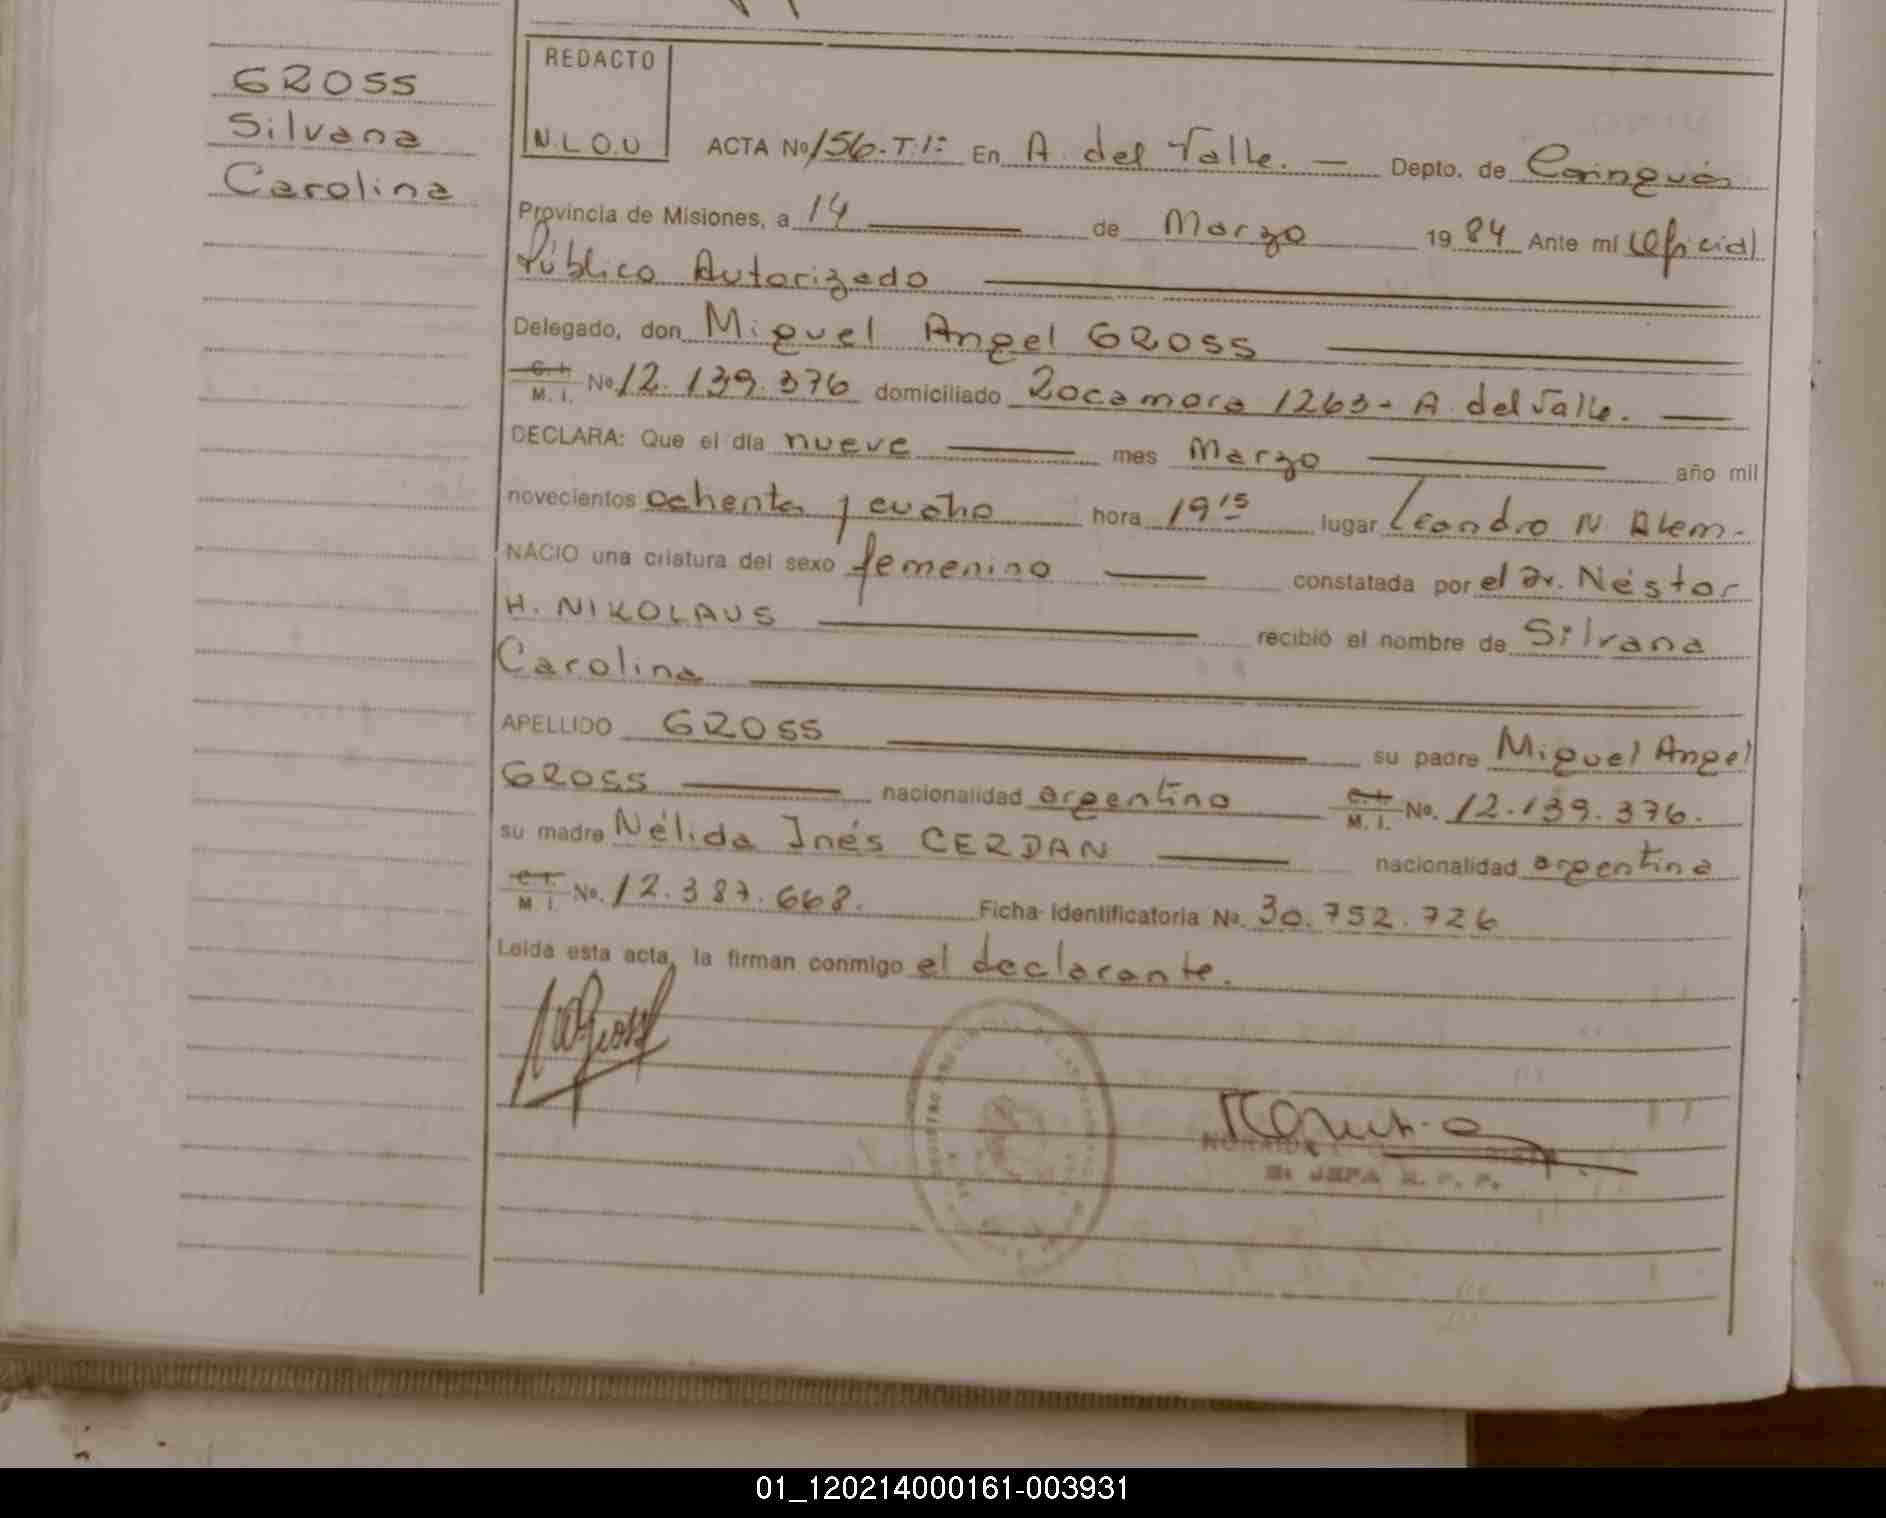 GROSS
Silvana
Carolina
REDACTO
N.L.O.U
ACTA Nº 156.T.1º En A. del Valle. — Depto. de Caingúas
Provincia de Misiones, a 14 de Marzo 1984 Ante mí (Oficial
Público Autorizado
Delegado, don Miguel Angel GROSS
C. I. M. I. Nº 12.139.376 domiciliado Rocamora 1263 - A. del Valle. —
DECLARA: Que el día nueve mes Marzo año mil
novecientos ochenta y cuatro hora 19 15 lugar Leandro N Alem -
NACIO una criatura del sexo femenino constatada por el Dr. Néstor
H. NIKOLAUS recibió el nombre de Silvana
Carolina
APELLIDO GROSS su padre Miguel Angel
GROSS nacionalidad argentino C. I. M. I. No. 12.139.376.
su madre Nélida Inés CERDAN nacionalidad argentina
C. I. M. I. No. 12.387.668. Ficha identificatoria No. 30.752.726
Leída esta acta, la firman conmigo el declarante.
JEFA R. P. P.
01_120214000161-003931